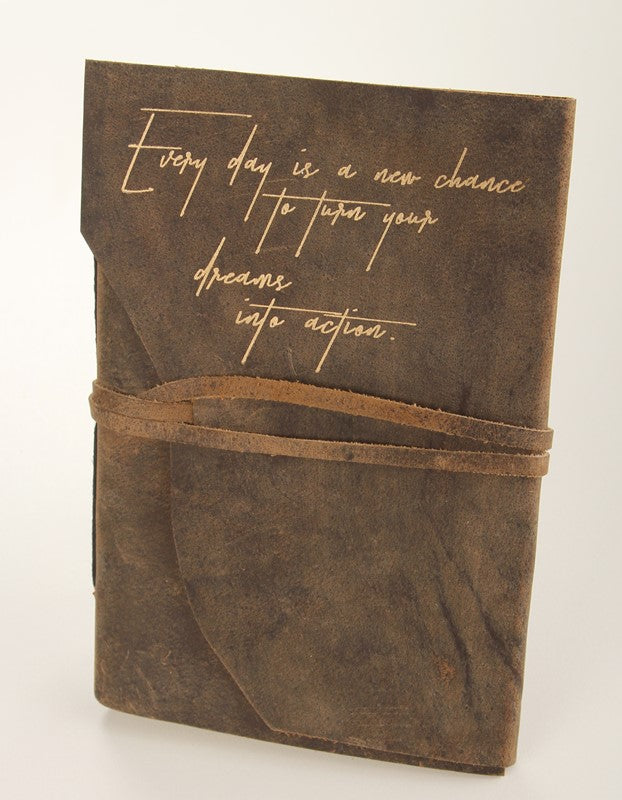 Every day is a new chance
to turn your
dreams
into action.